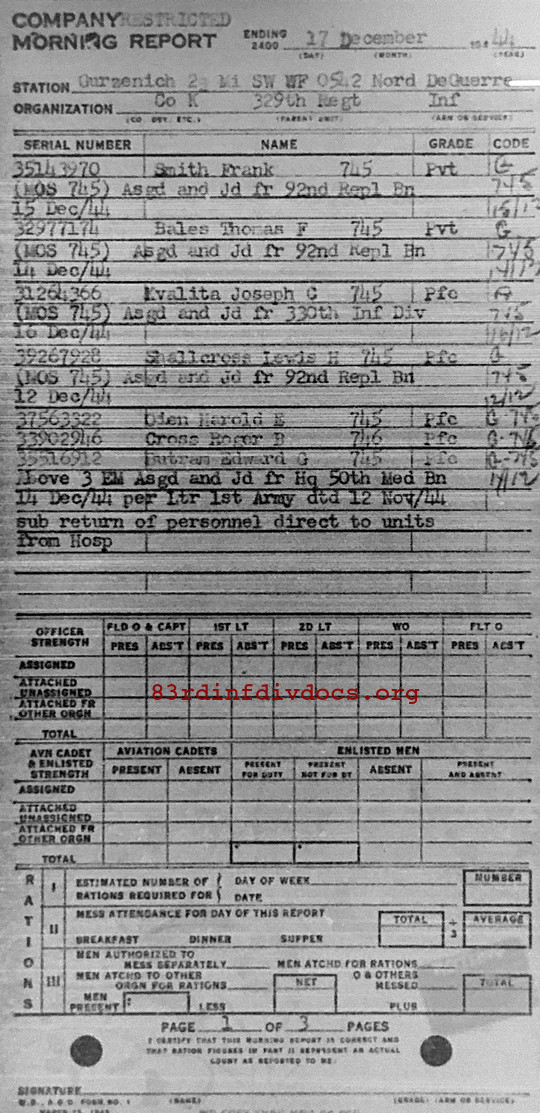 COMPANY RESTRICTED
MORNING REPORT ENDING 2400 17 December 1944
(DAY) (MONTH) (YEAR)
STATION Gurzenich 2 Mi SW WF 0542 Nord DeGuerre
ORGANIZATION Co K 329th Regt Inf
(CO. DET. ETC.) (PARENT UNIT) (ARM OR SERVICE)
SERIAL NUMBER NAME GRADE CODE
35143970 Smith Frank 745 Pvt G
(MOS 745) Asgd and Jd fr 92nd Repl Bn 745
15 Dec/44 15/12
32977174 Bales Thomas F 745 Pvt G
(MOS 745) Asgd and Jd fr 92nd Repl Bn 745
14 Dec/44 14/12
31264366 Kvalita Joseph G 745 Pfc
(MOS 745) Asgd and Jd fr 330th Inf Div 745
16 Dec/44 16/12
39267928 Shallcross Lewis H 745 Pfc G
(MOS 745) Asgd and Jd fr 92nd Repl Bn 745
12 Dec/44 12/12
37563322 Dien Harold E 745 Pfc G-745
33902946 Cross Roger B 746 Pfc G-746
35516912 Edward G 745 Pfc G-745
Above 3 EM Asgd and Jd fr Hq 50th Med Bn
14 Dec/44 per Ltr 1st Army dtd 12 Nov/44
sub return of personnel direct to units
from Hosp
OFFICER STRENGTH FLD O & CAPT 1ST LT 2D LT WO FLT O
PRES ABS'T PRES ABS'T PRES ABS'T PRES ABS'T PRES ABS'T
ASSIGNED
ATTACHED UNASSIGNED
83rdinfdivdocs.org
ATTACHED FR OTHER ORGN
TOTAL
AVN CADET & ENLISTED STRENGTH AVIATION CADETS ENLISTED MEN
PRESENT ABSENT PRESENT FOR DUTY PRESENT NOT FOR DY ABSENT PRESENT AND ABSENT
ASSIGNED
ATTACHED UNASSIGNED
ATTACHED FR OTHER ORGN
TOTAL
RATIONS
I ESTIMATED NUMBER OF RATIONS REQUIRED FOR { DAY OF WEEK DATE NUMBER
II MESS ATTENDANCE FOR DAY OF THIS REPORT TOTAL ÷ 3 AVERAGE
BREAKFAST DINNER SUPPER
III MEN AUTHORIZED TO MESS SEPARATELY MEN ATCHD FOR RATIONS
MEN ATCHD TO OTHER ORGN FOR RATIONS NET O & OTHERS MESSED TOTAL
MEN PRESENT: LESS PLUS
PAGE 1 OF 3 PAGES
I CERTIFY THAT THIS MORNING REPORT IS CORRECT AND
THAT RATION FIGURES IN PART II REPRESENT AN ACTUAL
COUNT AS REPORTED TO ME:
SIGNATURE
W.D., A.G.O. FORM NO. 1 (NAME) (GRADE) (ARM OR SERVICE)